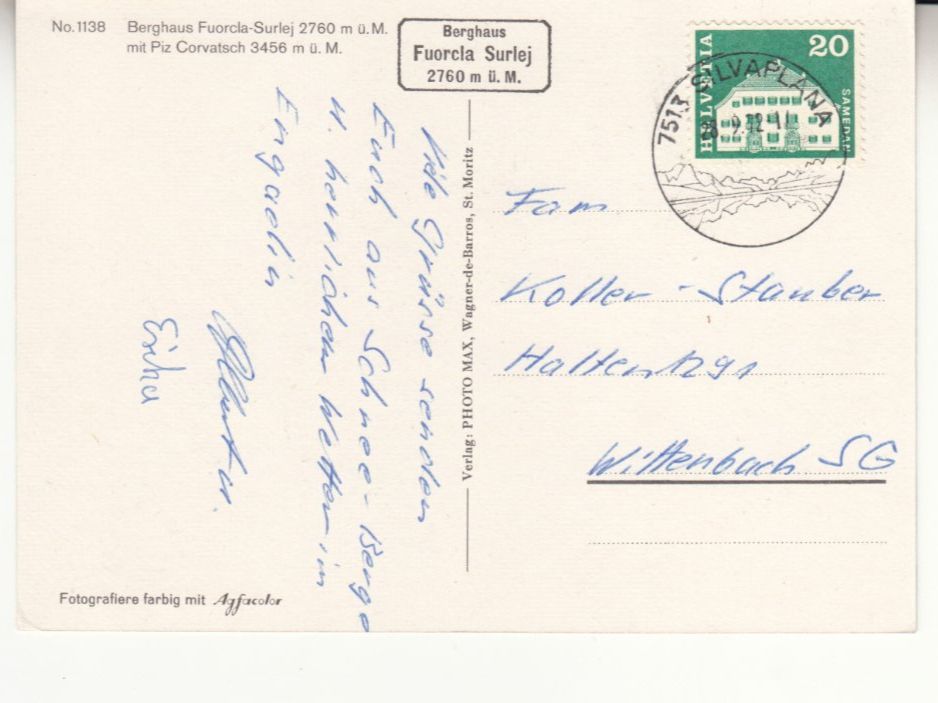 No. 1138 Berghaus Fuorcla-Surlej 2760 m ü. M.
mit Piz Corvatsch 3456 m ü. M.
Berghaus
Fuorcla Surlej
2760 m ü. M.
HELVETIA
20
SAMEDAN
7513 SILVAPLANA
9.72-11
Viele Grüsse senden
Euch aus Schnee-Berge
u. herrlichem Wetter im
Engadin
Albert u.
Erika
Verlag: PHOTO MAX, Wagner-de-Barros, St. Moritz
Fam
Koller - Stauber
Halten 1291
Wittenbach SG
Fotografiere farbig mit Agfacolor